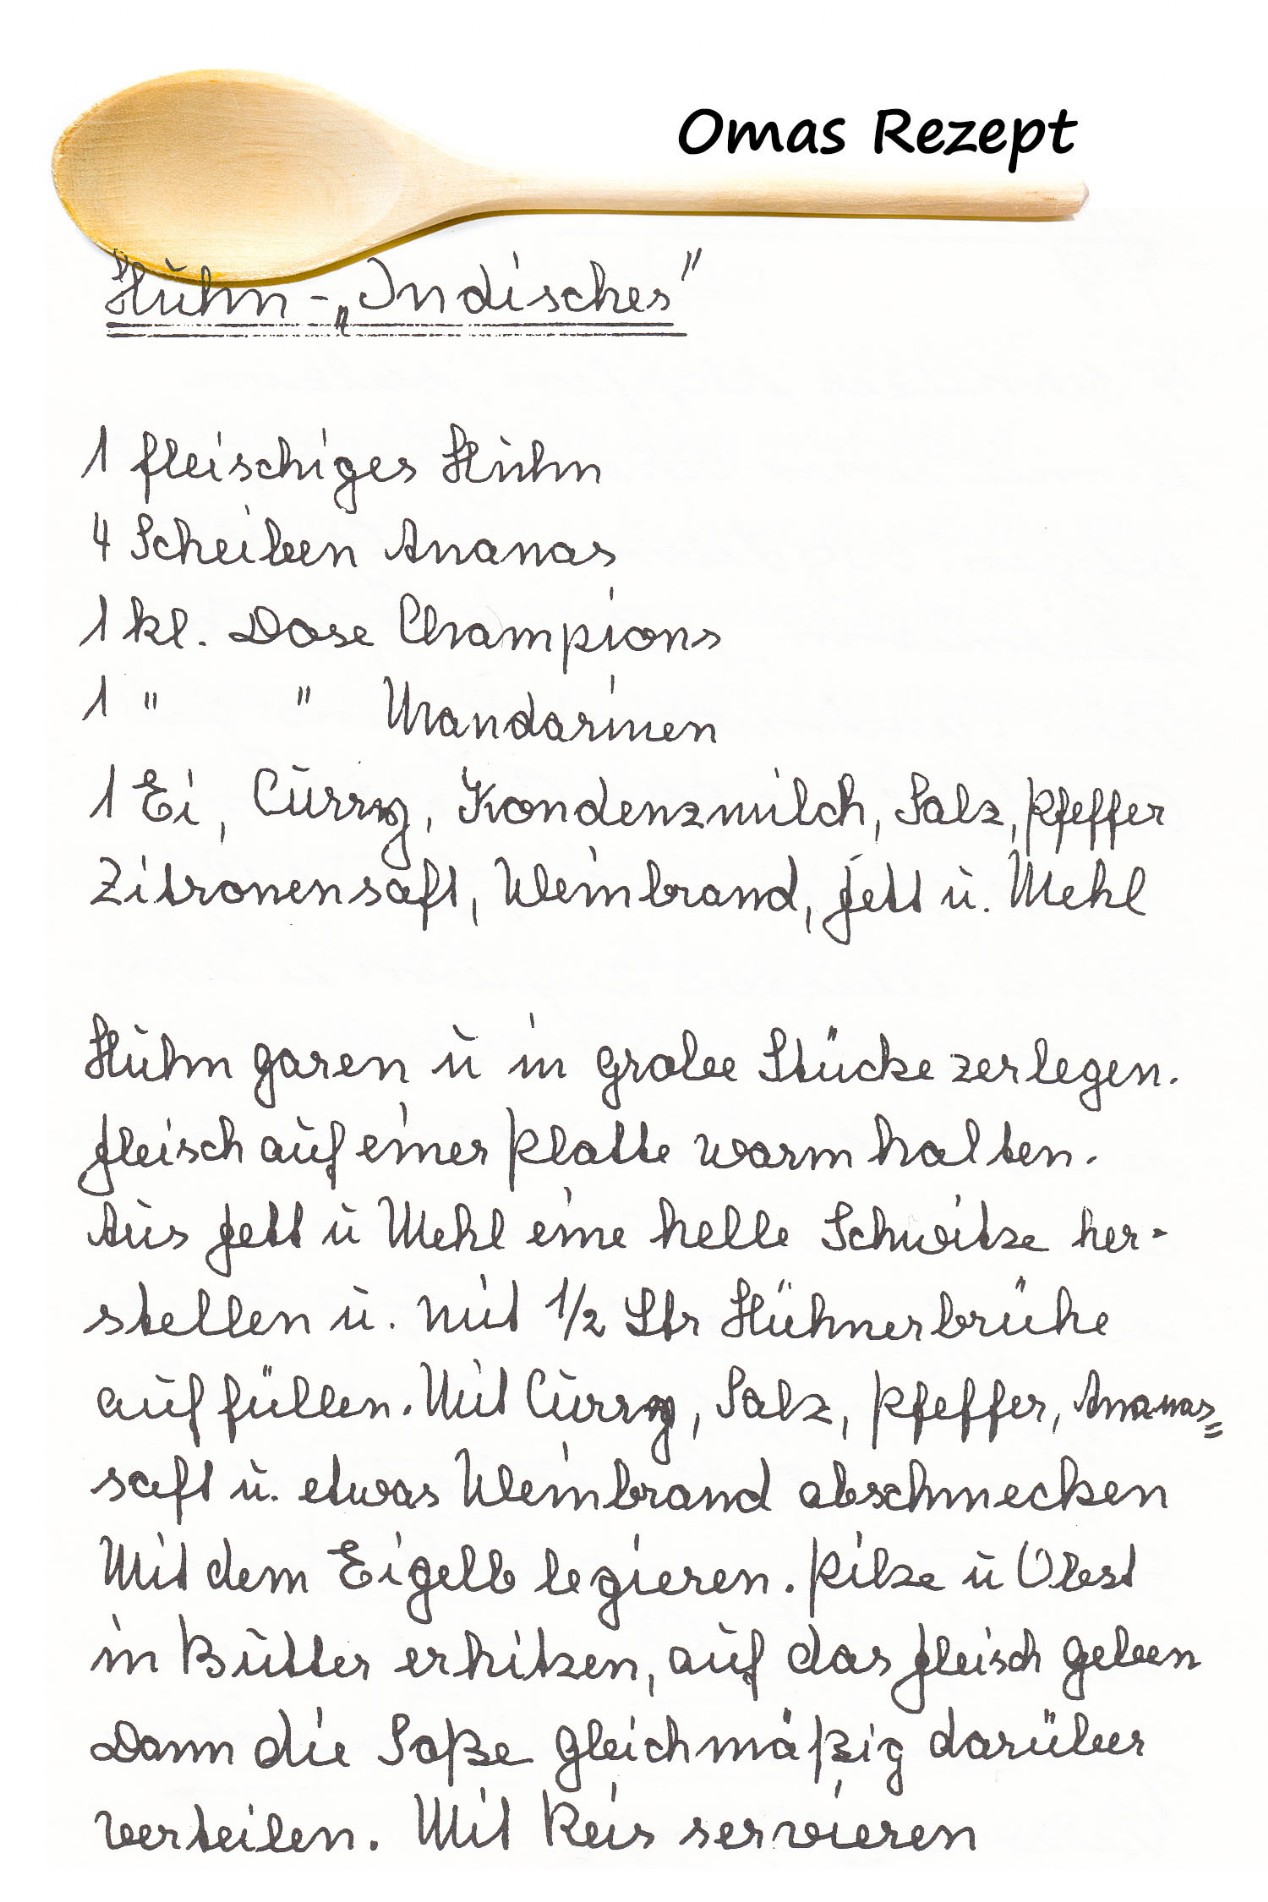 Omas Rezept
Huhn - „Indisches"
1 fleischiges Huhn
4 Scheiben Ananas
1 kl. Dose Champions
1 " " Mandarinen
1 Ei, Curry, Kondenzmilch, Salz, Pfeffer
Zitronensaft, Weinbrand, Fett u. Mehl
Huhn garen u in grobe Stücke zerlegen.
Fleisch auf einer Platte warm halten.
Aus Fett u Mehl eine helle Schwitze her-
stellen u. mit 1/2 Ltr Hühnerbrühe
auffüllen. Mit Curry, Salz, Pfeffer, Ananas=
saft u. etwas Weinbrand abschmecken
Mit dem Eigelb legieren. Pilze u Obst
in Butter erhitzen, auf das Fleisch geben
Dann die Soße gleichmäßig darüber
verteilen. Mit Reis servieren